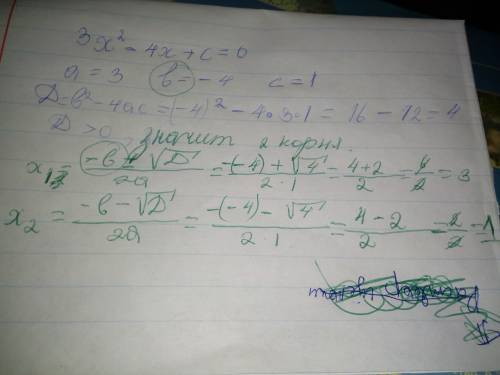 3x² - 4x + c = 0
a = 3 b = -4 c = 1
D = b² - 4ac = (-4)² - 4·3·1 = 16 - 12 = 4
D > 0 значит 2 корня.
x₁ = (-b + √D)/2a = (-(-4) + √4)/(2·1) = (4+2)/2 = 6/2 = 3
x₂ = (-b - √D)/2a = (-(-4) - √4)/(2·1) = (4-2)/2 = 2/2 = 1